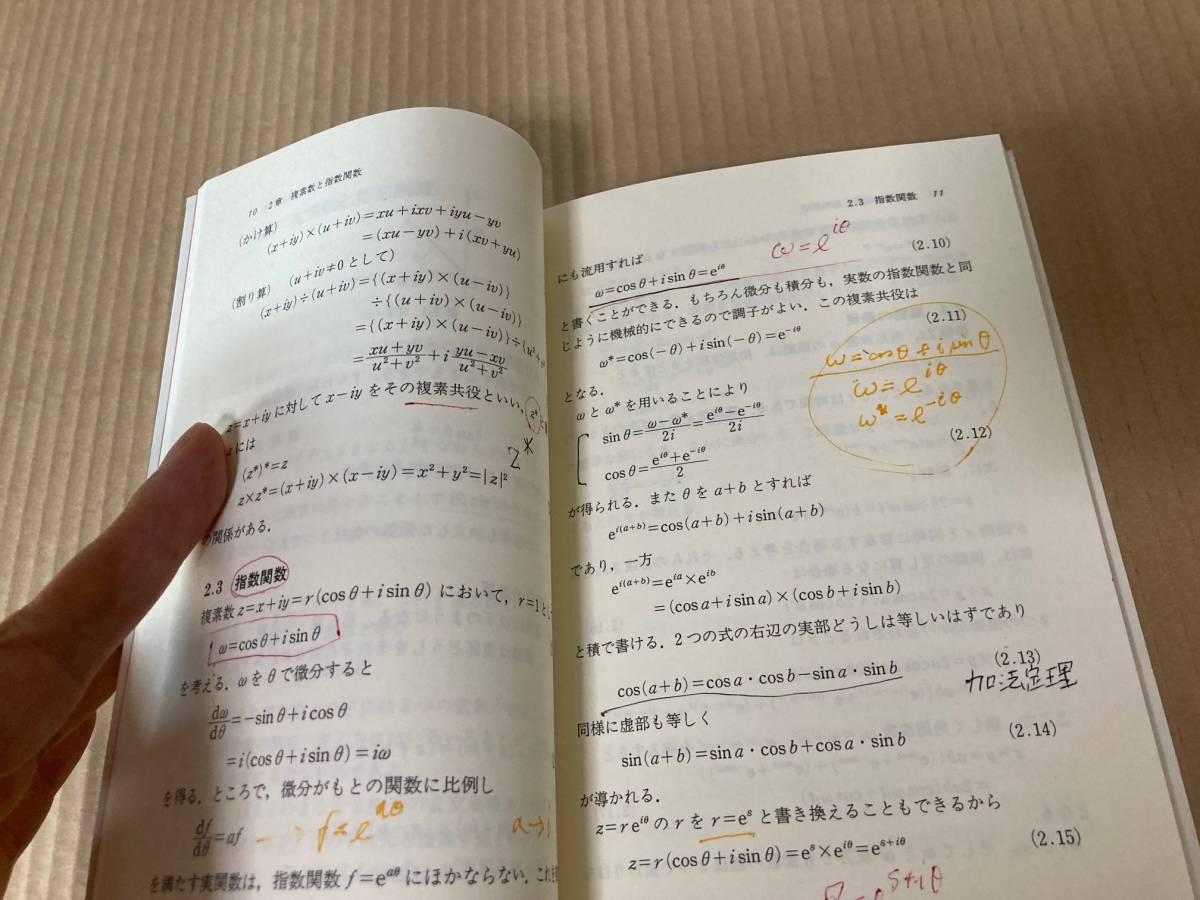 10 2章 複素数と指数関数
(かけ算)
(x+iy)×(u+iv)=xu+ixv+iyu−yv
=(xu−yv)+i(xv+yu)
(割り算) (u+iv≠0として)
(x+iy)÷(u+iv)={(x+iy)×(u−iv)}
÷{(u+iv)×(u−iv)}
={(x+iy)×(u−iv)}÷{u²+
=(xu+yv)/(u²+v²)+i(yu−xv)/(u²+v²)
z=x+iyに対してx−iyをその複素共役といい, z*
z*
には
(z*)*=z
z×z*=(x+iy)×(x−iy)=x²+y²=|z|²
の関係がある.
2.3 指数関数
複素数z=x+iy=r(cosθ+i sinθ)において, r=1と
ω=cosθ+i sinθ
を考える. ωをθで微分すると
dω/dθ=−sinθ+i cosθ
=i(cosθ+i sinθ)=iω
を得る. ところで, 微分がもとの関数に比例し
df/dθ=af → f=e^{aθ} a→
を満たす実関数は, 指数関数f=e^{aθ}にほかならない. これ
2.3 指数関数 11
にも流用すれば ω=e^{iθ}
ω=cosθ+i sinθ=e^{iθ} (2.10)
と書くことができる. もちろん微分も積分も, 実数の指数関数と同
じように機械的にできるので調子がよい. この複素共役は
ω*=cos(−θ)+i sin(−θ)=e^{−iθ} (2.11)
ω=cosθ+i sinθ
ω=e^{iθ}
ω*=e^{−iθ}
となる.
ωとω*を用いることにより
sinθ=(ω−ω*)/2i=(e^{iθ}−e^{−iθ})/2i
cosθ=(e^{iθ}+e^{−iθ})/2 (2.12)
が得られる. またθをa+bとすれば
e^{i(a+b)}=cos(a+b)+i sin(a+b)
であり, 一方
e^{i(a+b)}=e^{ia}×e^{ib}
=(cos a+i sin a)×(cos b+i sin b)
と積で書ける. 2つの式の右辺の実部どうしは等しいはずであり
cos(a+b)=cos a・cos b−sin a・sin b (2.13)
加法定理
同様に虚部も等しく
sin(a+b)=sin a・cos b+cos a・sin b (2.14)
が導かれる.
z=r e^{iθ}のrをr=e^sと書き換えることもできるから
z=r(cosθ+i sinθ)=e^s×e^{iθ}=e^{s+iθ} (2.15)